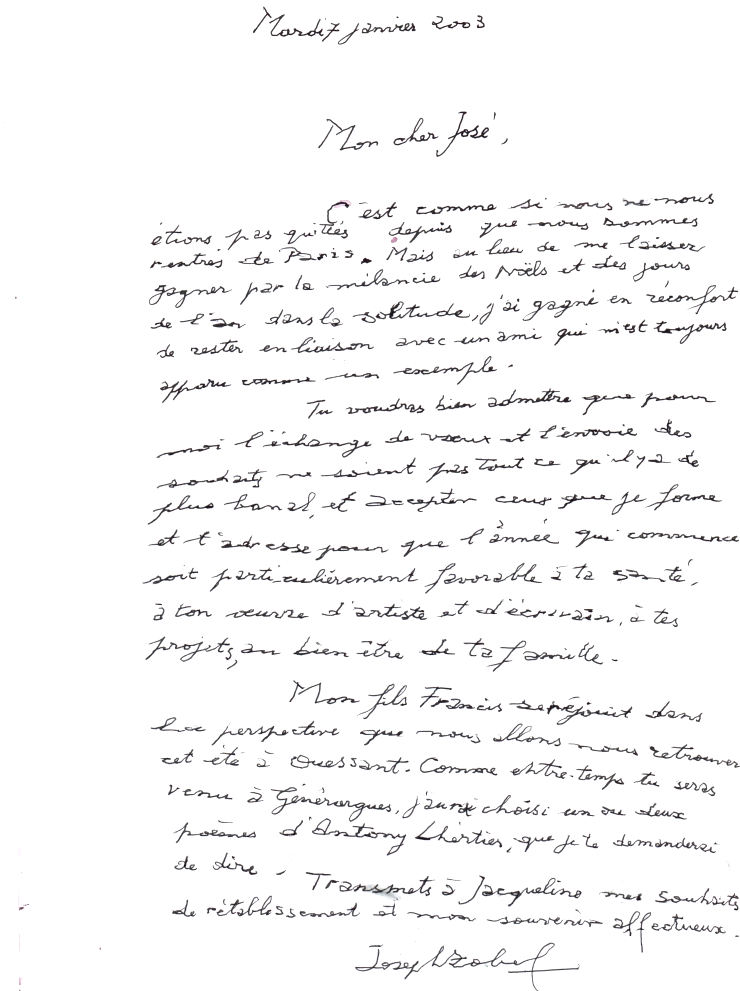 Mardi 7 janvier 2003
Mon cher José,
C'est comme si nous ne nous
étions pas quittés depuis que nous sommes
rentrés de Paris. Mais au lieu de me laisser
gagner par la mélancie des Noëls et des jours
de l'an dans la solitude, j'ai gagné en réconfort
de rester en liaison avec un ami qui m'est toujours
apparu comme un exemple.
Tu voudras bien admettre que pour
moi l'échange de vœux et l'envoie des
souhaits ne soient pas tout ce qu'il y a de
plus banal, et accepter ceux que je forme
et t'adresse pour que l'année qui commence
soit particulièrement favorable à ta santé,
à ton œuvre d'artiste et d'écrivain, à tes
projets, au bien être de ta famille.
Mon fils Francis se réjouit dans
la perspective que nous allons nous retrouver
cet été à Ouessant. Comme entre-temps tu seras
venu à Générargues, j'aurai choisi un ou deux
poèmes d'Antony Lhéritier, que je te demanderai
de dire. Transmets à Jacqueline mes souhaits
de rétablissement et mon souvenir affectueux.
Joseph Zobel